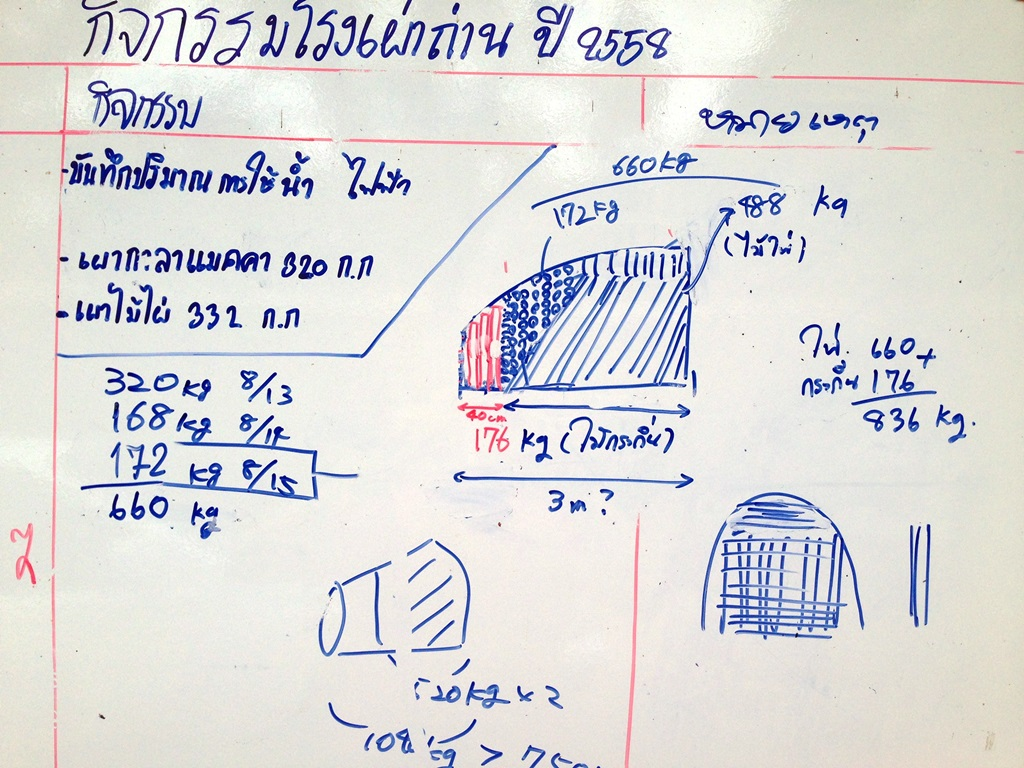 กิจกรรมโรงเผาถ่าน ปี 2558
กิจกรรม
หมายเหตุ
-บันทึกปริมาณการใช้น้ำ ไฟฟ้า
- เผากะลาแมคคา 320 ก.ก
- เผาไม้ไผ่ 332 ก.ก
320 kg 8/13
168 kg 8/14
172 kg 8/15
660 kg
660 kg
172 kg
488 kg
(ไม้ไผ่)
40cm
176 kg (ไม้กระถิน)
3 m ?
ไผ่ 660 +
กระถิน 176
836 kg.
520 kg x 2
kg >